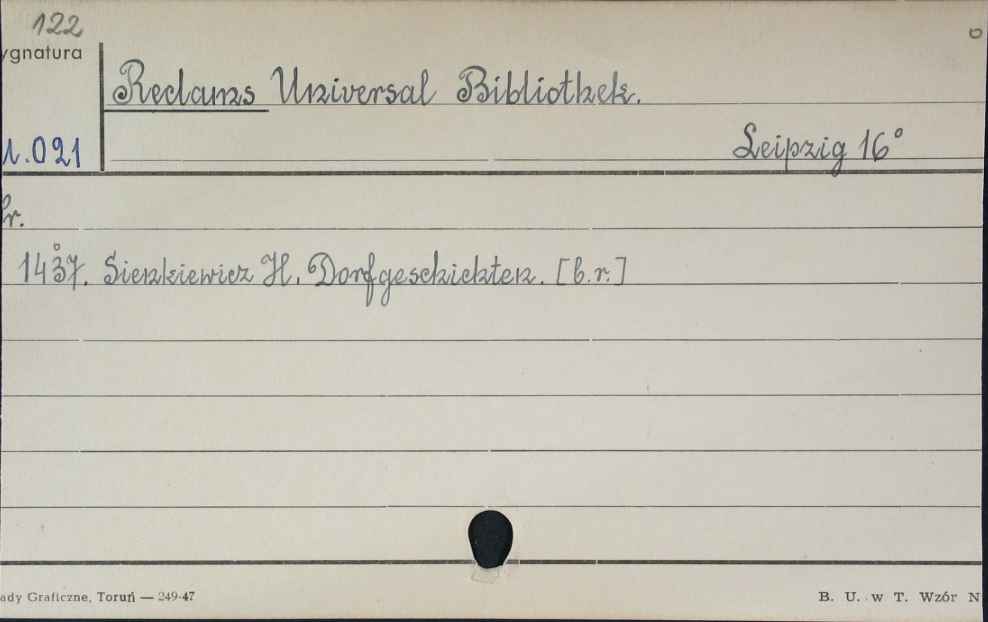 122
ygnatura
Reclams Universal Bibliothek.
1.021
Leipzig 16°
Nr.
1437. Sienkiewicz H. Dorfgeschichten. [b.r.]
ady Graficzne, Toruń — 249-47
B. U. w T. Wzór N